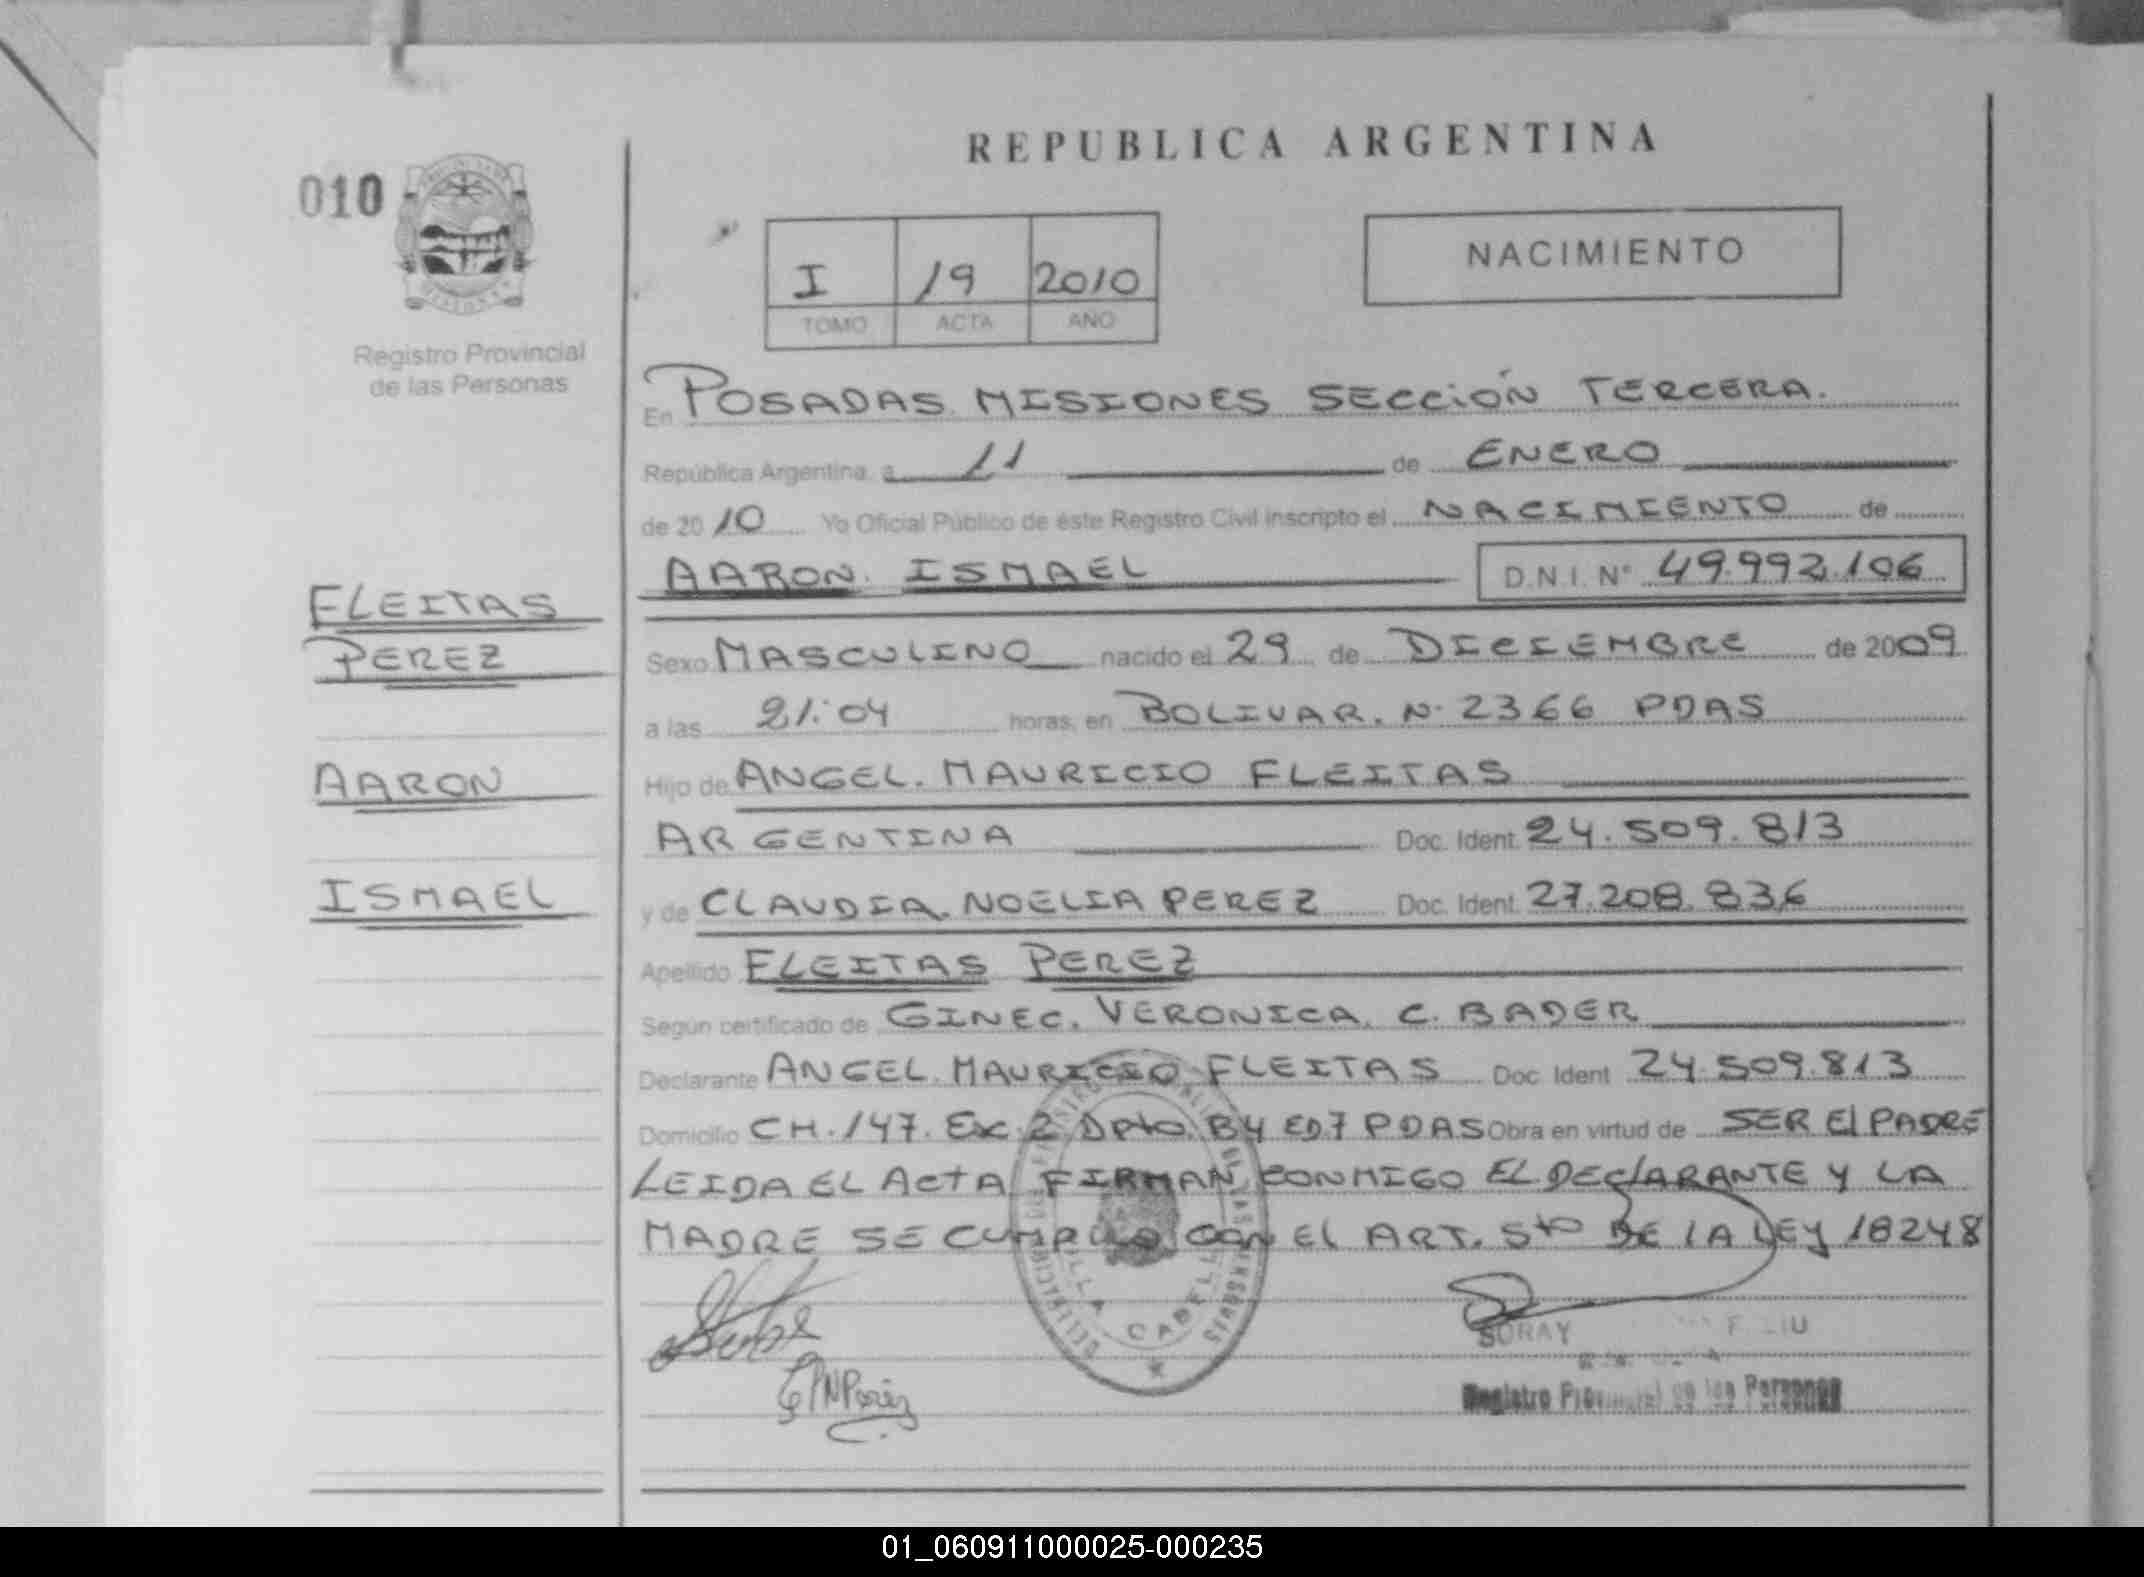 REPUBLICA ARGENTINA
010
I 19 2010
TOMO ACTA AÑO
NACIMIENTO
Registro Provincial
de las Personas
En POSADAS. MISIONES SECCIÓN TERCERA.
República Argentina, a 11 de ENERO
de 2010 Yo Oficial Público de éste Registro Civil inscripto el NACIMIENTO de
AARON. ISMAEL D.N.I. N° 49.992.106
FLEITAS
PEREZ
AARON
ISMAEL
Sexo MASCULINO nacido el 29 de DICIEMBRE de 2009
a las 21:04 horas, en BOLIVAR. N. 2366 PDAS
Hijo de ANGEL. MAURICIO FLEITAS
ARGENTINA Doc. Ident. 24.509.813
y de CLAUDIA. NOELIA PEREZ Doc. Ident. 27.208.836
Apellido FLEITAS PEREZ
Según certificado de GINEC. VERONICA. C. BADER
Declarante ANGEL. MAURICIO FLEITAS Doc. Ident 24.509.813
Domicilio CH. 147. Exc. 2 Dpto. B4 ED7 PDAS Obra en virtud de SER El PADRE
LEIDA EL ACTA FIRMAN CONMIGO EL DEClARANTE Y LA
MADRE SE CUMPLIO CON EL ART. 5to DE lA LEY 18248
VILLA CABELLO
PNPerez
SORAY
Registro Provincial de las Personas
01_060911000025-000235